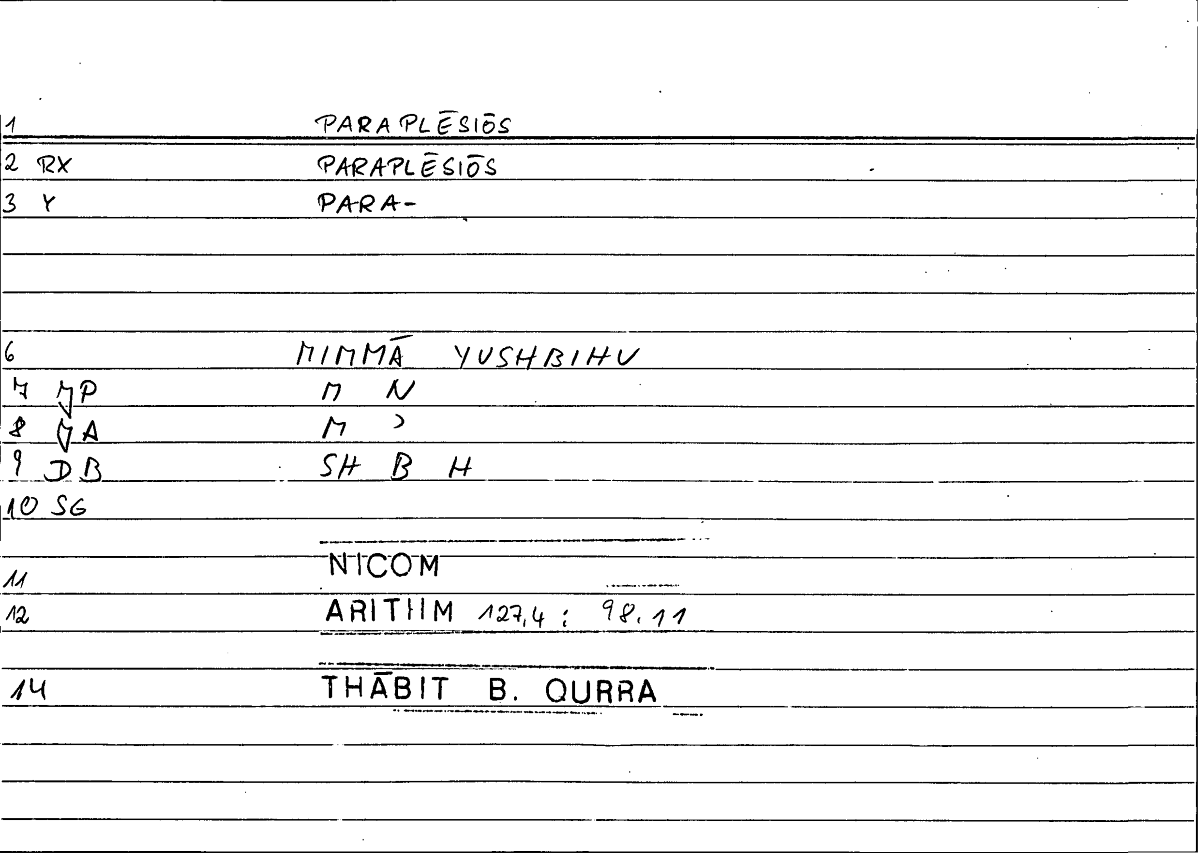 1 PARAPLĒSIŌS
2 RX PARAPLĒSIŌS
3 Y PARA-
6 MIMMĀ YUSHBIHU
7 MP M N
8 MA M ʾ
9 DB SH B H
10 SG
11 NICOM
12 ARITHM 127,4 : 98.11
14 THĀBIT B. QURRA